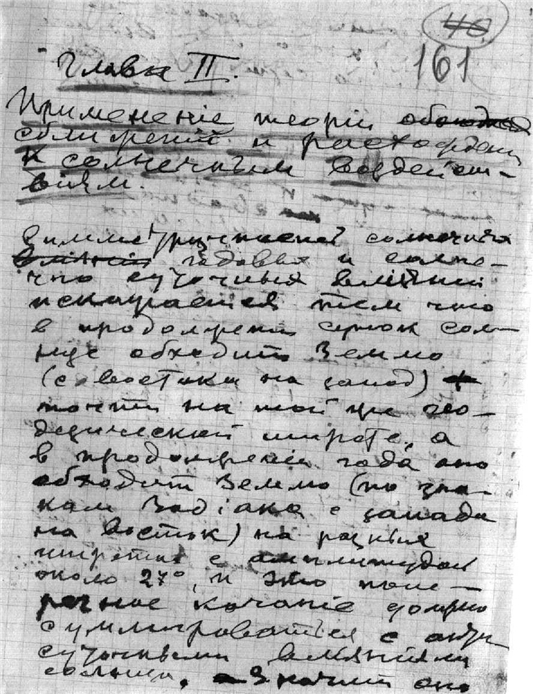 40
161
Глава II.
Примененіе теоріи
сближеній и расхожденій
к солнечным воздейст-
віям.
солнечных
годовых и солне-
чно суточных вліяній
тем что
в продолженіи суток сол-
нце обходит Землю
(с востока на запад)
почти на той же гео-
дезической широте, а
в продолженіи года оно
обходит Землю (по зна-
кам Зодіака с запада
на восток) на разных
широтах с амплитудой
около 27°, и это попе-
речное качаніе должно
суммироваться с
суточными вліяніями
солнца. Значит оно